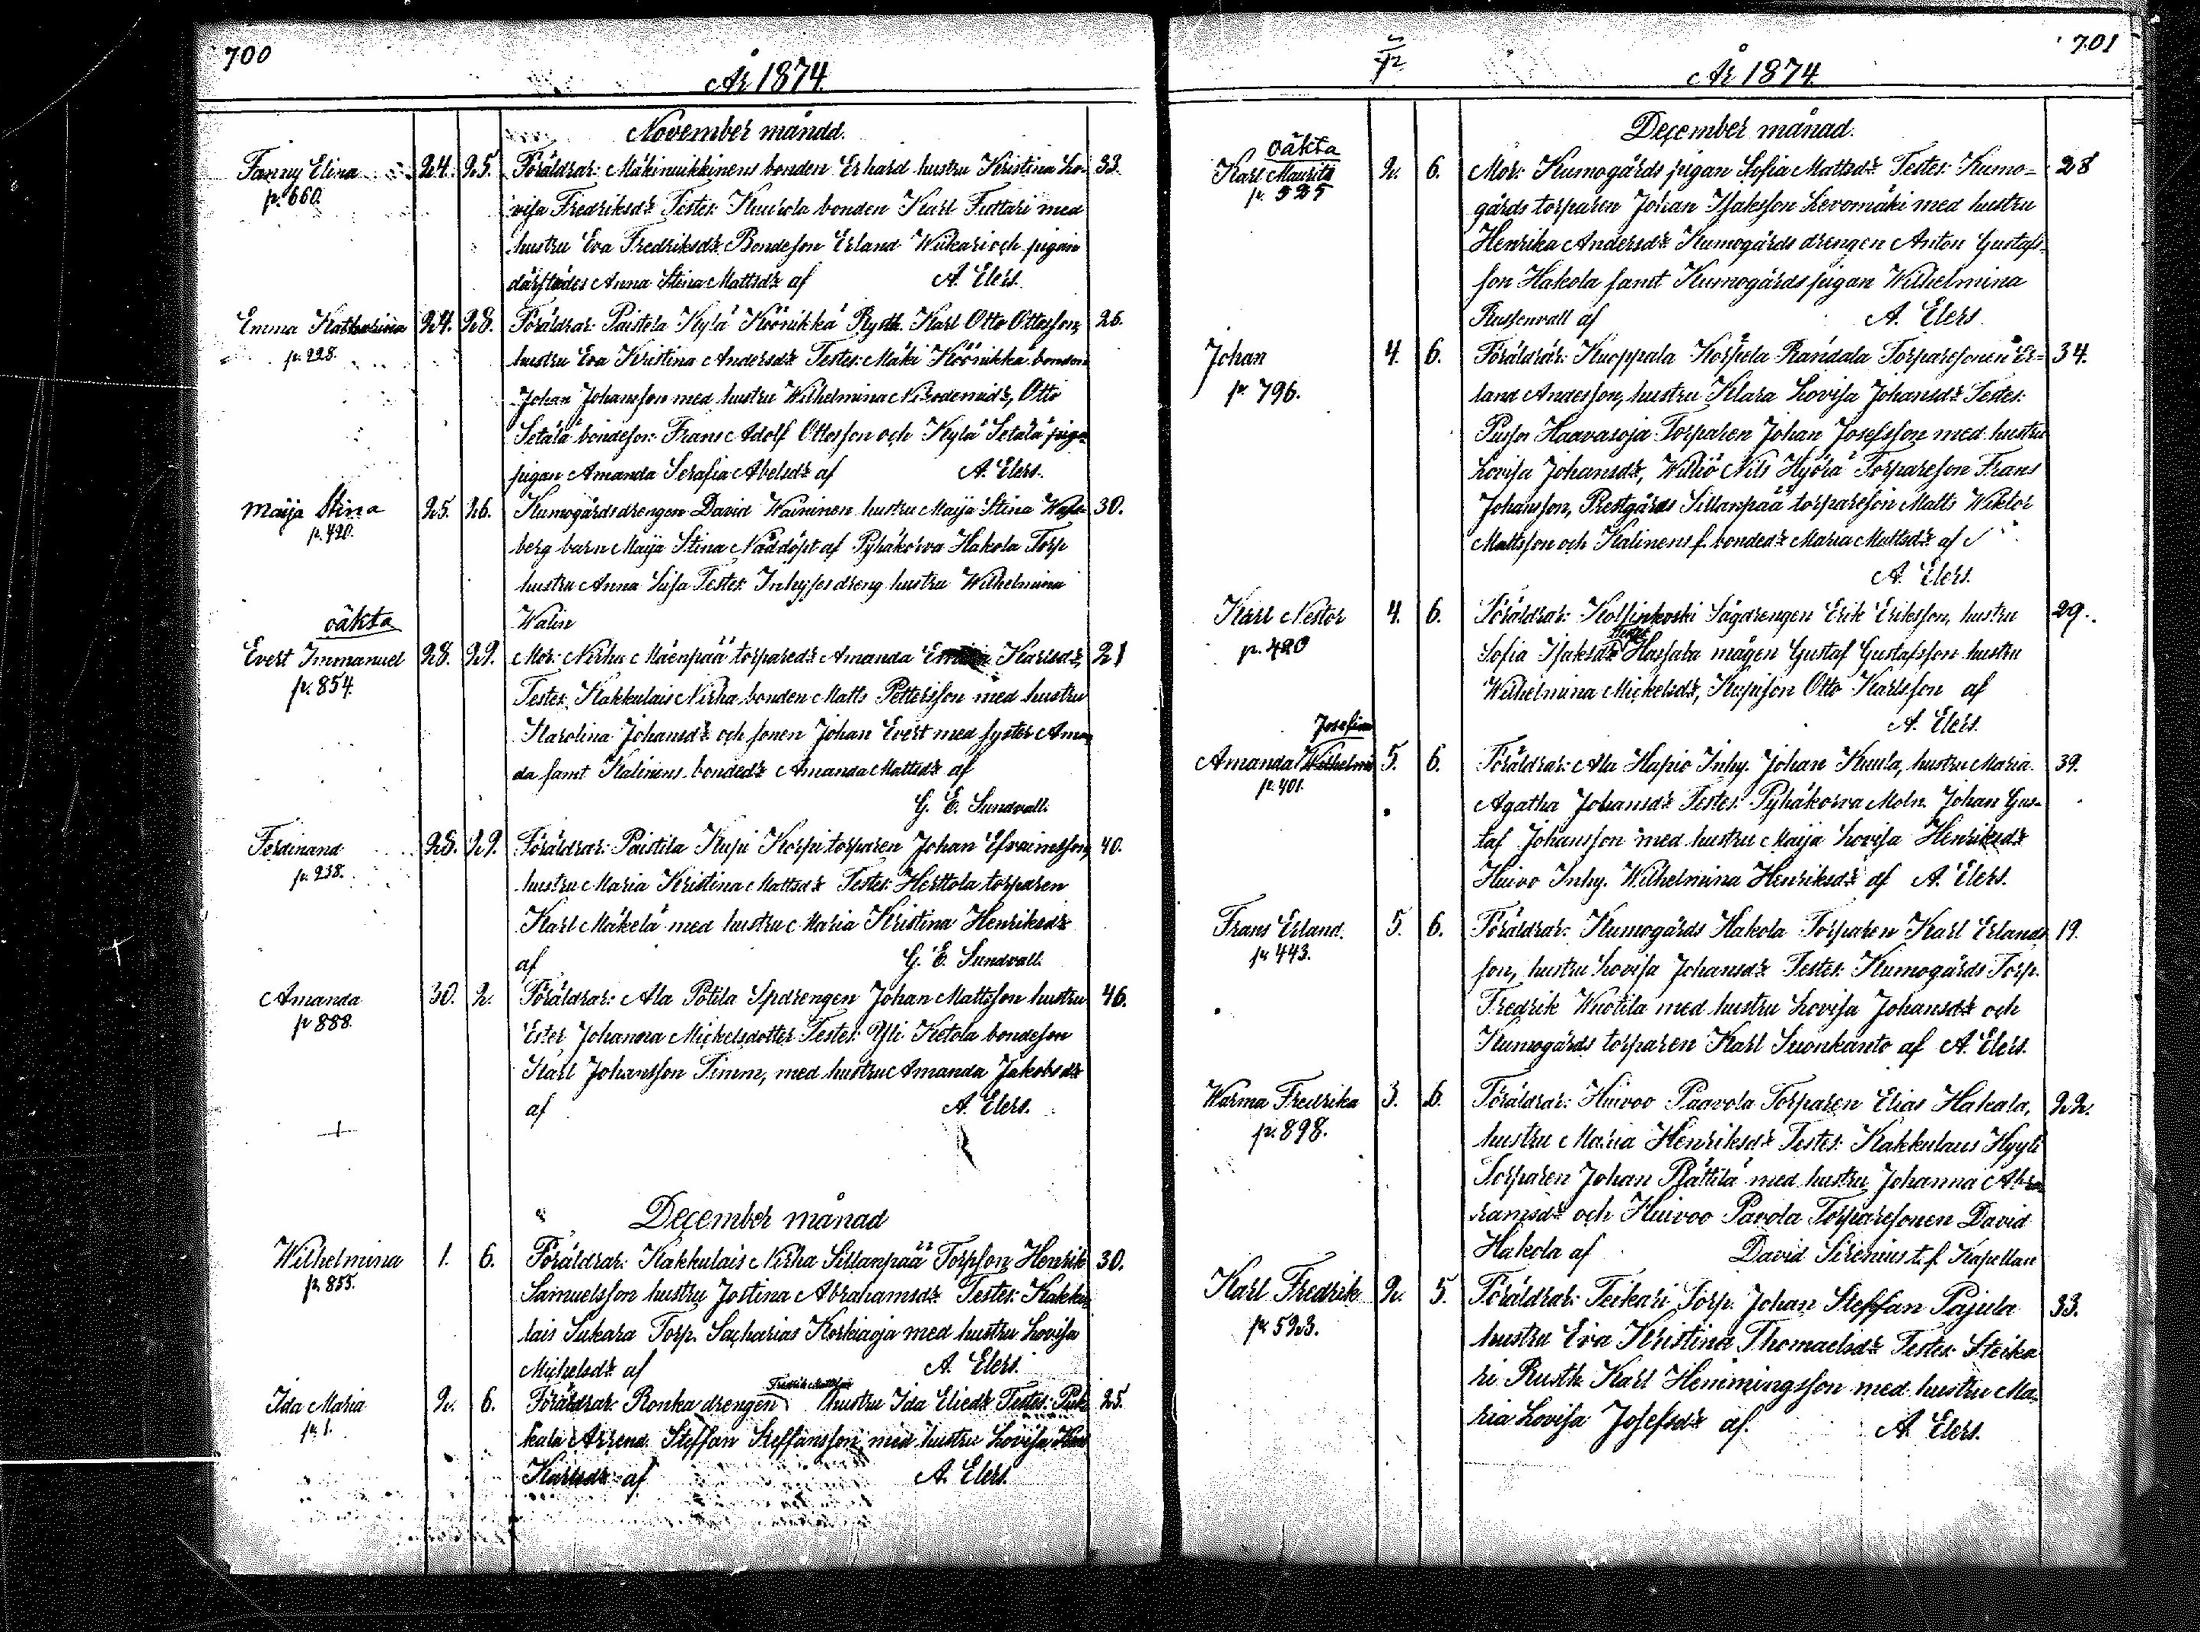 700
År 1874.
November månad.
Fanny Elina 24. 25. Föräldrar: Mäkinuikkinens bonden Erhard hustru Kristina Lo- 33.
p. 660. visa Fredriksdr Testes: Kaurola bonden Karl Futtari med
hustru Eva Fredriksdr Bondeson Erland Wiikari och pigan
därstädes Anna Stina Mattsdr af A. Elers.
Emma Katharina 24. 28. Föräldrar: Paistela Kylä Köönikkä Rusth. Karl Otto Ottosson, 26.
p. 228. hustru Eva Kristina Andersdr Testes: Mäki Köönikkä bonden
Johan Johansson med hustru Wilhelmina Nikodemidr, Otto
Setälä bondeson: Frans Adolf Ottosson och Kylä Setälä
pigan Amanda Serafia Abelsdr af A. Elers.
Maija Stina 25. 26. Kumogårdsdrengen David Waininen hustru Maija Stina 30.
p. 420. berg barn Maija Stina Nöddöpt af Pyhäkorva Hakola Torp
hustru Anna Lisa Testes: Inhyses dreng hustru Wilhelmina
Walin
oäkta
Evert Immanuel 28. 29. Mor: Nirhu Mäenpää torparedr Amanda Karlsdr, 21
p. 854. Testes: Kakkulais Nirha bonden Matts Pettersson med hustru
Karolina Johansdr och sonen Johan Evert med syster Aman
da samt Kalinens bondedr Amanda Mattsdr af
G. E. Sundvall.
Ferdinand 28. 29. Föräldrar: Paistila Kupi Korpi torparen Johan Efraimsson, 40.
p. 238. hustru Maria Kristina Mattsdr Testes: Herttola torparen
Karl Mäkelä med hustru Maria Kristina Henriksdr
af G. E. Sundvall.
Amanda 30. 2. Föräldrar: Ala Potila Spdrengen Johan Mattsson hustru 46.
p 888. Ester Johanna Mickelsdotter Testes: Yli Ketola bondeson
Karl Johansson Timm, med hustru Amanda Jakobsdr
af A. Elers.
December månad
Wilhelmina 1. 6. Föräldrar: Kakkulais Nirha Sillanpää Torpson Henrik 30.
p. 855. Samuelsson hustru Jostina Abrahamsdr Testes: Kakku
lais Sukara Torp. Sacharias Korkiaoja med hustru Lovisa
Michelsdr af A. Elers.
Ida Maria 2. 6. Föräldrar: Ronka drengen hustru Ida Eliedr Testes: 25.
p. 1. kala Arrend. Steffan Steffansson med hustru Lovisa
Karlsdr af A. Elers.
701
År 1874
December månad.
oäkta
Karl Maurits 2. 6. Mor: Kumogårds pigan Sofia Mattsdr Testes: Kumo- 28
p. 525 gårds torparen Johan Isaksson Levomäki med hustru
Henrika Andersdr Kumogårds drengen Anton Gustafs-
son Hakola samt Kumogårds pigan Wilhelmina
Russenvall af A. Elers
Johan 4. 6. Föräldrar: Kuoppala Korpela Randala Torparesonen Er- 34.
p. 796. land Andersson, hustru Klara Lovisa Johansdr Testes:
Haavasoja Torparen Johan Josefsson med hustru
Lovisa Johansdr, Williö Nils Hyörä Torpareson Frans
Johansson, Prestgårds Sillanpää torpareson Matts Wiktor
Mattsson och Kalinens f. bondedr Maria Mattsdr af
A. Elers.
Karl Nestor 4. 6. Föräldrar: Kolsinkoski Sågdrengen Erik Eriksson, hustru 29.
p. 420 Sofia Isaksdr Testes: Hassaba mågen Gustaf Gustafsson hustru
Wilhelmina Mickelsdr, Kupison Otto Karlsson af
A. Elers.
Josefina
Amanda Wilhelmi 5. 6. Föräldrar: Ala Hapio Inhy. Johan Kuula, hustru Maria 39.
p. 401. Agatha Johansdr Testes: Pyhäkorva Moln. Johan Gus-
taf Johansson med hustru Maija Lovisa Henriksdr
Huivo Inhy. Wilhelmina Henriksdr af A. Elers.
Frans Erland. 5. 6. Föräldrar: Kumogårds Hakola Torparen Karl Erlands 19.
p. 443. son, hustru Lovisa Johansdr Testes: Kumogårds Torp.
Fredrik Wuotila med hustru Lovisa Johansdr och
Kumogårds torparen Karl Suonkanto af A. Elers.
Warma Fredrika 3. 6. Föräldrar: Huivoo Paavola Torparen Elias Hakala, 22.
p. 898. hustru Maria Henriksdr Testes: Kakkulaus Hyyti
Torparen Johan Rättilä med hustru Johanna Abra
ramsdr och Huivoo Pavola Torparesonen David
Hakola af David Sirenius t.f. Kapellan
Karl Fredrik 2. 5. Föräldrar: Teikari Torp. Johan Steffan Pajula 33.
p. 523. hustru Eva Kristina Thomaelsdr Testes: Steika
ri Rusth. Karl Hemmingsson med hustru Ma
ria Lovisa Josefsdr af. A. Elers.